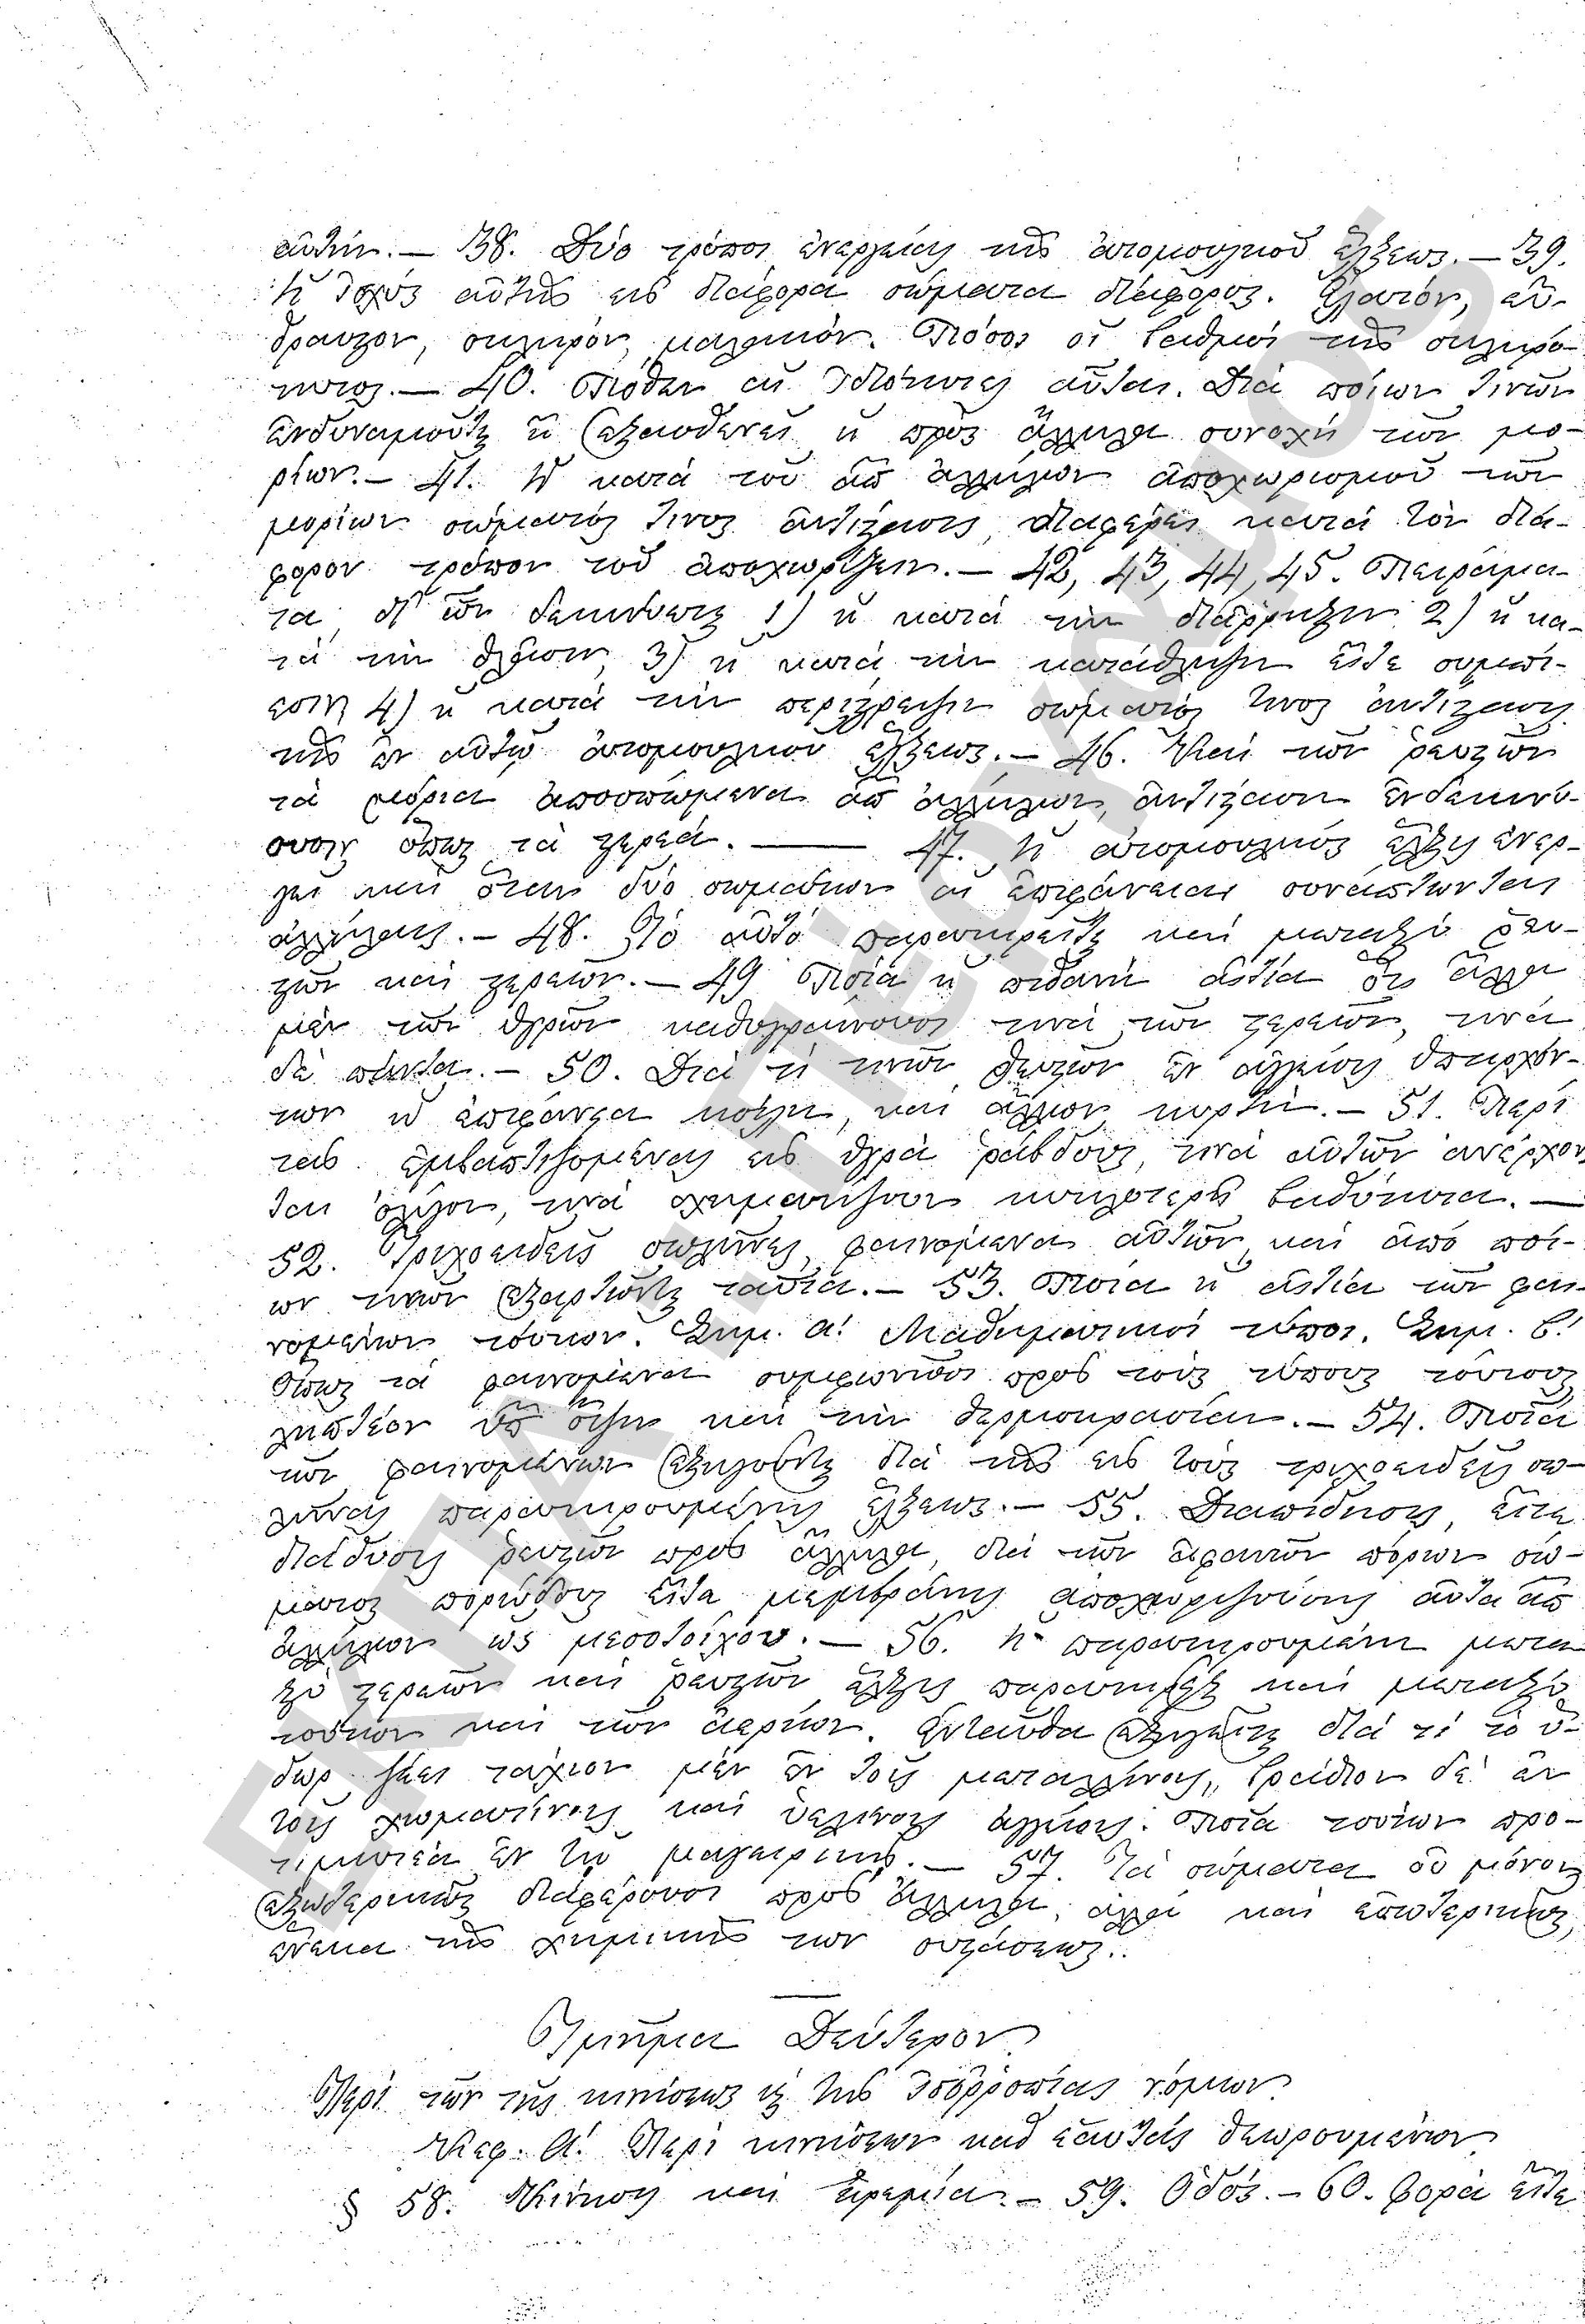 αὐτήν. — 38. Δύο τρόποι ἐνεργείας τῆς ἀτομουλκοῦ ἕλξεως. — 39.
Ἡ ἰσχὺς αὐτῆς εἰς διάφορα σώματα διάφορος. Ἐλατόν, εὔ-
θραυστον, σκληρόν, μαλακόν. Πόσοι οἱ βαθμοὶ τῆς σκληρό-
τητος. — 40. Πόθεν αἱ ἰδιότητες αὗται. Διὰ ποίων τινῶν
ἐνδυναμοῦται ἢ ἐξασθενεῖ ἡ πρὸς ἄλληλα συνοχὴ τῶν μο-
ρίων. — 41. Ἡ κατὰ τοῦ ἀπ' ἀλλήλων ἀποχωρισμοῦ τῶν
μορίων σώματός τινος ἀντίστασις διαφέρει κατὰ τὸν διά-
φορον τρόπον τοῦ ἀποχωρίζειν. — 42, 43, 44, 45. Πειράμα-
τα δι' ὧν δεικνύεται 1) ἡ κατὰ τὴν διάρρηξιν 2) ἡ κα-
τὰ τὴν θλάσιν, 3) ἡ κατὰ τὴν κατάθλιψιν εἴτε συμπί-
εσιν 4) ἡ κατὰ τὴν περίστρεψιν σώματός τινος ἀντίστασις
τῆς ἐν αὐτῷ ἀτομουλκοῦ ἕλξεως. — 46. Καὶ τῶν ῥευστῶν
τὰ μόρια ἀποσπώμενα ἀπ' ἀλλήλων, ἀντίστασιν ἐνδεικνύ-
ουσιν ὅπως τὰ στερεά. — 47. Ἡ ἀτομουλκὸς ἕλξις ἐνερ-
γεῖ καὶ ὅταν δύο σωμάτων αἱ ἐπιφάνειαι συνάπτωνται
ἀλλήλαις. — 48. Τὸ αὐτὸ παρατηρεῖται καὶ μεταξὺ ῥευ-
στῶν καὶ στερεῶν. — 49 Ποία ἡ πιθανὴ αἰτία ὅτι ἄλλα
μὲν τῶν ὑγρῶν καθυγραίνουσι τινὰ τῶν στερεῶν, τινὰ
δὲ πάντα. — 50. Διὰ τί τινῶν ῥευστῶν ἐν ἀγγείοις ὑπαρχόν-
των ἡ ἐπιφάνεια κοίλη, καὶ ἄλλων κυρτή. — 51. Περὶ
τὰς ἐμβαπτιζομένας εἰς ὑγρὰ ῥάβδους, τινὰ αὐτῶν ἀνέρχον
ται ὀλίγον, τινὰ σχηματίζουσι κοιλότερα βαθύτητα. —
52. Τριχοειδεῖς σωλῆνες, φαινόμενα αὐτῶν, καὶ ἀπὸ ποί-
ων τινῶν ἐξαρτῶνται ταῦτα. — 53. Ποία ἡ αἰτία τῶν φαι-
νομένων τούτων. Σημ. α! Μαθηματικοὶ τύποι. Σημ. β!
Ὅπως τὰ φαινόμενα συμφωνῶσι πρὸς τοὺς τύπους τούτους
ληπτέον ὑπ' ὄψιν καὶ τὴν θερμοκρασίαν. — 54. Ποῖα
τῶν φαινομένων ἐξηγοῦνται διὰ τῆς εἰς τοὺς τριχοειδεῖς σω-
λῆνας παρατηρουμένης ἕλξεως. — 55. Διαπίδυσις, εἴτε
διάδυσις ῥευστῶν πρὸς ἄλληλα, διὰ τῶν ἀφανῶν πόρων σώ-
ματος πορώδους εἴτε μεμβράνης ἀποχωριζούσης αὐτὰ ἀπ'
ἀλλήλων ὡς μεσοτοίχου. — 56. Ἡ παρατηρουμένη μετα
ξὺ στερεῶν καὶ ῥευστῶν ἕλξις παρατηρεῖται καὶ μεταξὺ
τούτων καὶ τῶν ἀερίων. Ἐνταῦθα ἐξηγεῖται διὰ τί τὸ ὕ-
δωρ ζέει τάχιον μὲν ἐν τοῖς μεταλλίνοις, βράδιον δὲ ἐν
τοῖς χωματίνοις καὶ ὑελίνοις ἀγγείοις. Ποῖα τούτων προ-
τιμητέα ἐν τῇ μαγειρικῇ. — 57. Τὰ σώματα οὐ μόνον
ἐξωτερικῶς διαφέρουσι πρὸς ἄλληλα, ἀλλὰ καὶ ἐσωτερικῶς,
ἕνεκα τῆς χημικῆς των συστάσεως.
Τμῆμα Δεύτερον
Περὶ τῶν τῆς κινήσεως καὶ τῆς ἰσορροπίας νόμων
Κεφ. Α! Περὶ κινήσεων καθ' ἑαυτὰς θεωρουμένων
§ 58. Κίνησις καὶ ἠρεμία. — 59. Ὁδός. — 60. Φορὰ εἴτε